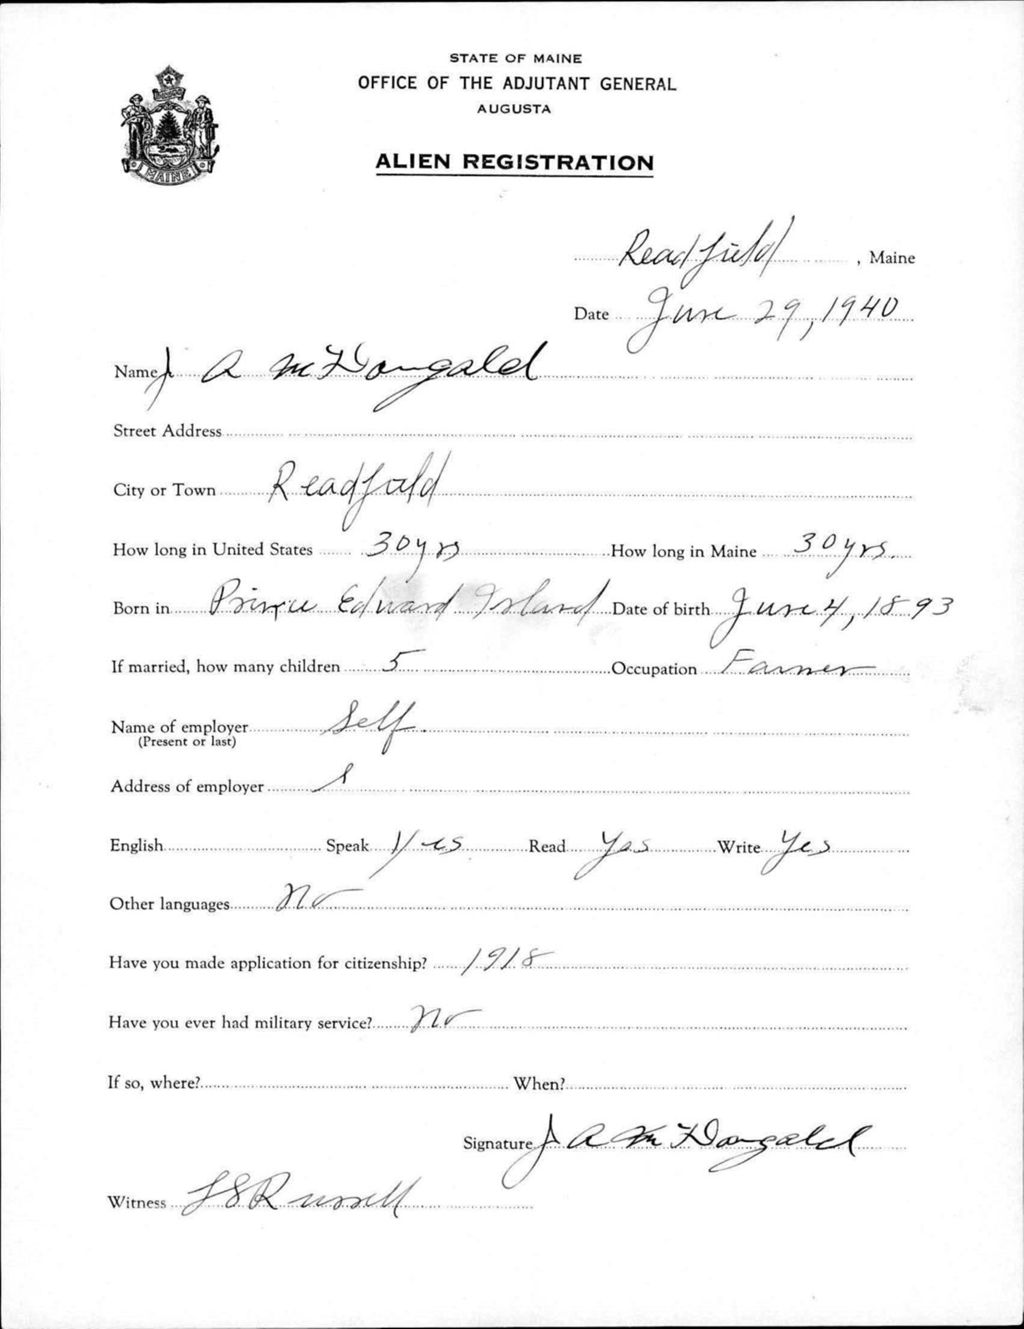 STATE OF MAINE
OFFICE OF THE ADJUTANT GENERAL
AUGUSTA
ALIEN REGISTRATION
MAINE
Readfield, Maine
Date June 29, 1940
Name J A McDougald
Street Address
City or Town Readfield
How long in United States 30 yrs How long in Maine 30 yrs.
Born in Prince Edward Island Date of birth June 4, 1893
If married, how many children 5 Occupation Farmer
Name of employer Self.
(Present or last)
Address of employer
English Speak Yes Read Yes Write Yes
Other languages No
Have you made application for citizenship? 1918
Have you ever had military service? No
If so, where? When?
Signature J A McDougald
Witness Russell